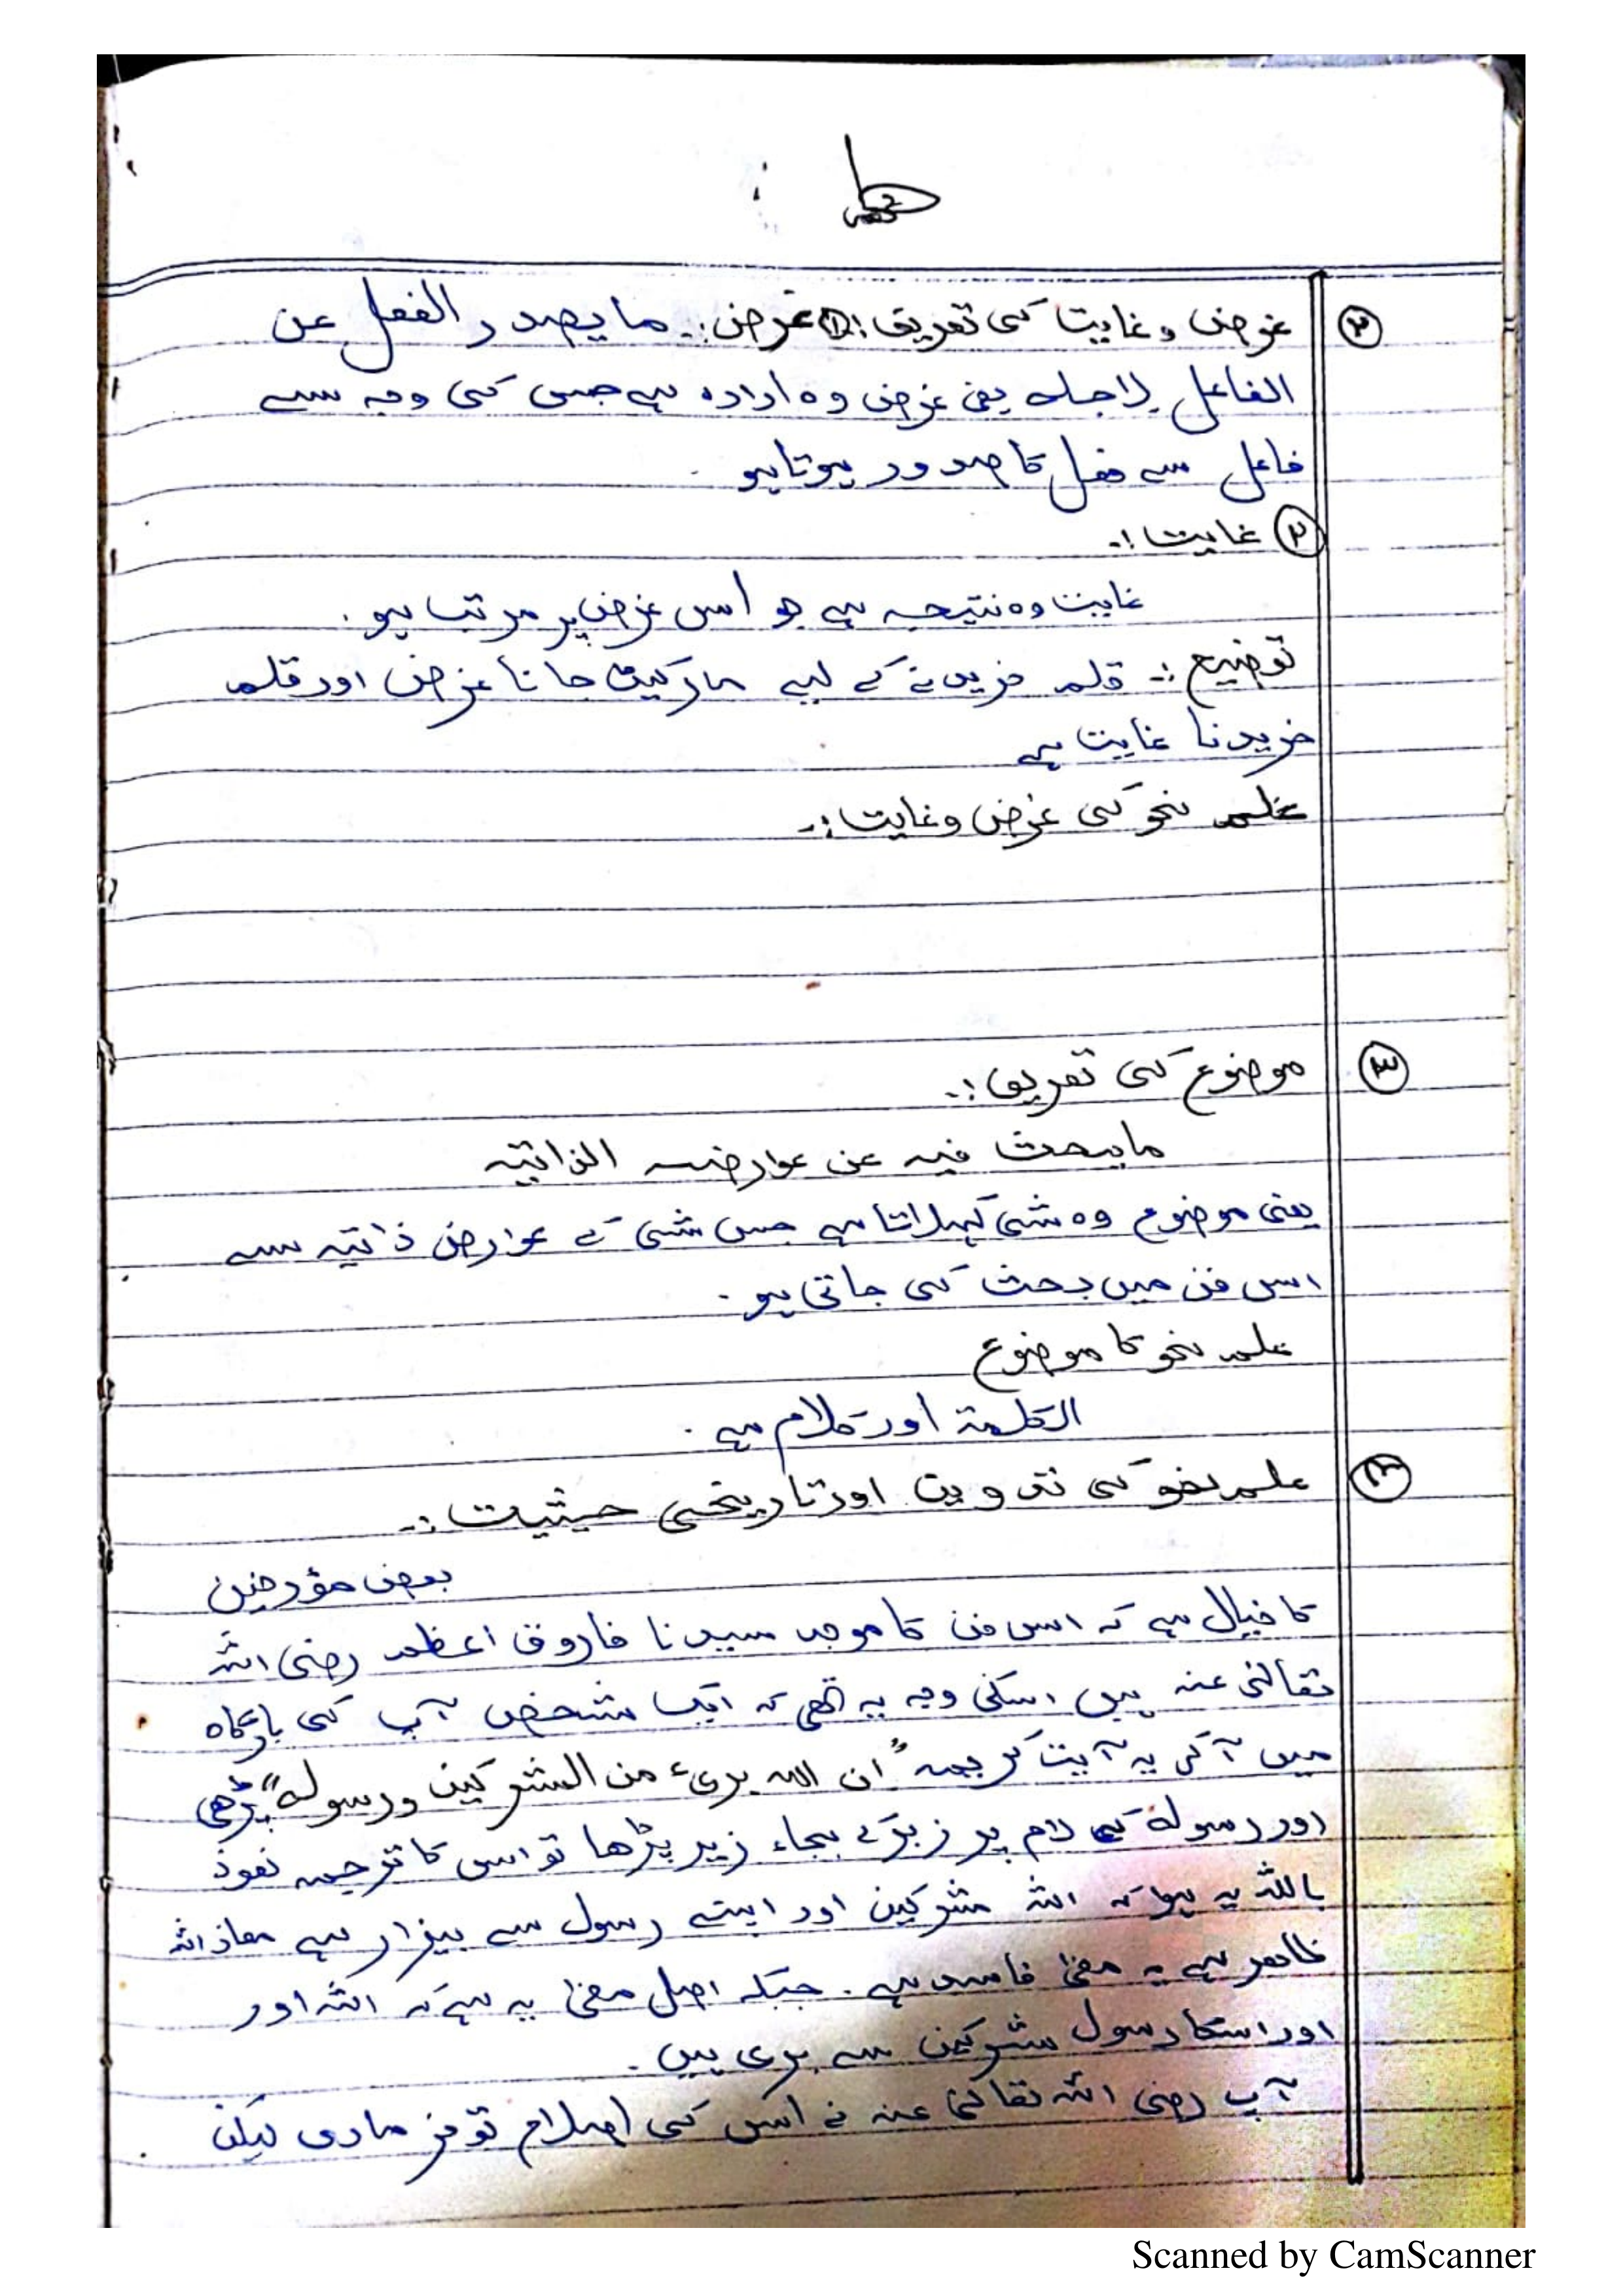 ۲ غرض و غایت کی تعریف :۔ ① غرض :۔ ما یصدر الفعل عن
الفاعل لاجلہ یعنی غرض وہ ارادہ ہے جس کی وجہ سے
فاعل سے فعل کا صدور ہوتا ہو ۔
۲ غایت :۔
غایت وہ نتیجہ ہے جو اس غرض پر مرتب ہو ۔
توضیح :۔ قلم خریدنے کے لیے مارکیٹ جانا غرض اور قلم
خریدنا غایت ہے
علم نحو کی غرض و غایت :۔
۳ موضوع کی تعریف :۔
ما یبحث فیہ عن عوارضہ الذاتیہ
یعنی موضوع وہ شئی کہلاتا ہے جس شئی کے عوارض ذاتیہ سے
اس فن میں بحث کی جاتی ہو ۔
علم نحو کا موضوع
الکلمۃ اور کلام ہے ۔
۴ علم نحو کی تدوین اور تاریخی حیثیت :۔
بعض مؤرخین
کا خیال ہے کہ اس فن کا موجد سیدنا فاروق اعظم رضی اللہ
تعالیٰ عنہ ہیں اسکی وجہ یہ تھی کہ ایک شخص آپ کی بارگاہ
میں آ کر یہ آیت کریمہ "ان اللہ بریء من المشرکین ورسولہ" پڑھی
اور رسولہ کے لام پر زبر کے بجاء زیر پڑھا تو اس کا ترجمہ نعوذ
باللہ یہ ہوا کہ اللہ مشرکین اور اپنے رسول سے بیزار ہے معاذ اللہ
ظاہر ہے یہ معنیٰ فاسد ہے ۔ جبکہ اصل معنیٰ یہ ہے کہ اللہ اور
اور اسکا رسول مشرکین سے بری ہیں ۔
آپ رضی اللہ تعالیٰ عنہ نے اس کی اصلاح تو فرمادی لیکن
Scanned by CamScanner